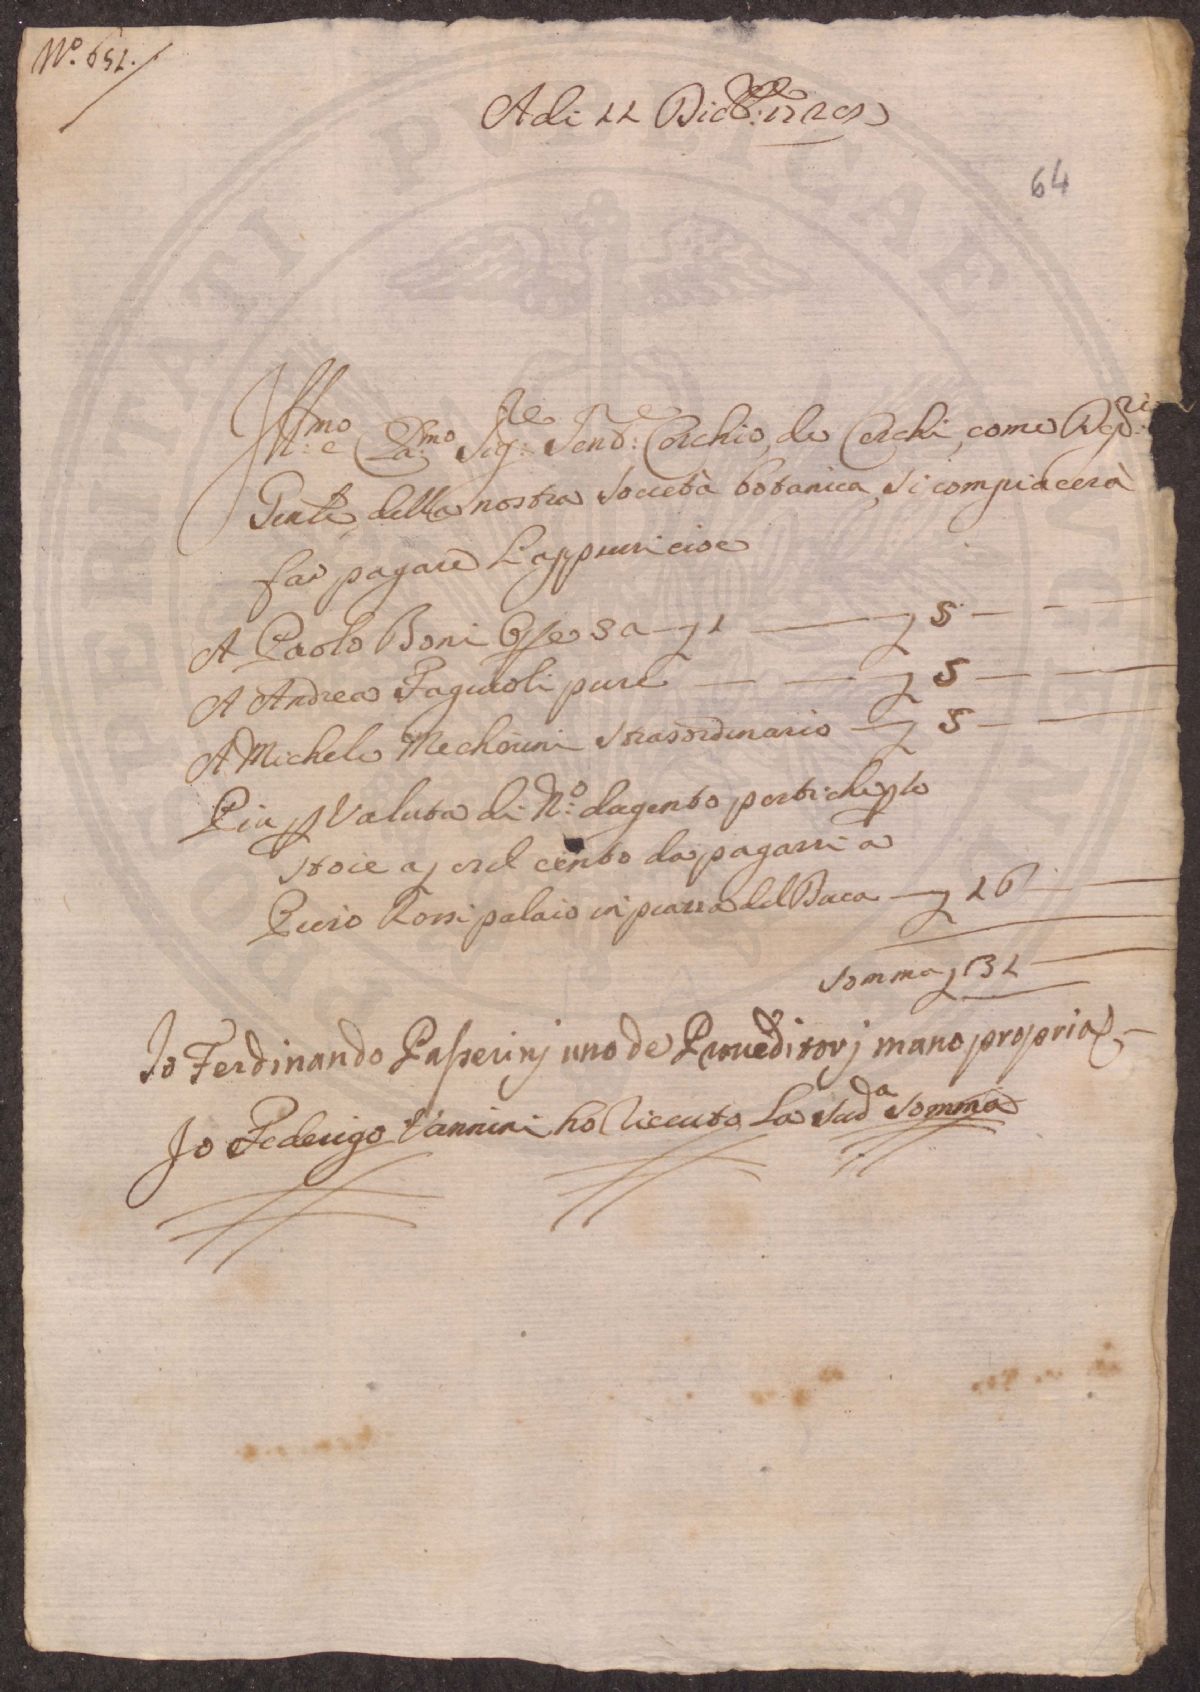 N.º 651.
Adi 11 Dicbre: 1729
64
Illmo: e Cla:mo Sig:re Send:e Cerchio de Cerchi, come Depri:
Pente della nostra Società botanica, si compiacerà
far pagare L'appiè cioe
A Paolo Boni Opre 5 a £ 1 — £ 5 —
A Andrea Fagiuoli pure — £ 5 —
A Michele Mechòuni Straordinario — £ 5 —
Più Valuta di N.º dugento pertiche
Stoie a cento da pagarsi a
Piero Rossi palaio in piazza del Duca — £ 16 —
Somma £ 31 —
Io Ferdinando Passerinj uno de Proveditorj mano propria
Io Federigo Vannini ho riceuto La Sud.a Somma
PERITATI PVBLICAE